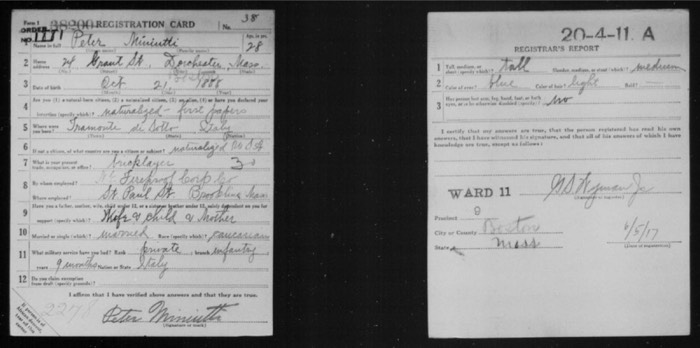 Form 1 38200 REGISTRATION CARD No. 38
ORDER
NO.
1 Name in full Peter Miniutti Age, in yrs. 28
2 Home address 24 Grant St. Dorchester, Mass.
3 Date of birth Oct 21 1888
4 Are you (1) a natural-born citizen, (2) a naturalized citizen, (3) an alien, (4) or have you declared your
intention (specify which)? naturalized - first papers
5 Where were you born? Tramonte di Sotto Italy
6 If not a citizen, of what country are you a citizen or subject? naturalized U.S.A
7 What is your present trade, occupation, or office? bricklayer 3
8 By whom employed? Fireproof Corp Co
Where employed? St. Paul St. Brookline Mass
9 Have you a father, mother, wife, child under 12, or a sister or brother under 12, solely dependent on you for
support (specify which)? Wife & child & Mother
10 Married or single (which)? married Race (specify which)? caucasian
11 What military service have you had? Rank private ; branch infantry
years 9 months Nation or State Italy
12 Do you claim exemption from draft (specify grounds)?
I affirm that I have verified above answers and that they are true.
2276 Peter Miniutti
(Signature or mark)
20-4-11. A
REGISTRAR'S REPORT
1 Tall, medium, or short (specify which)? tall Slender, medium, or stout (which)? medium
2 Color of eyes? blue Color of hair? light Bald?
3 Has person lost arm, leg, hand, foot, or both eyes, or is he otherwise disabled (specify)? no
I certify that my answers are true, that the person registered has read his own
answers, that I have witnessed his signature, and that all of his answers of which I have
knowledge are true, except as follows:
WARD 11
Precinct 9
City or County Boston
State Mass 6/5/17
(Date of registration)